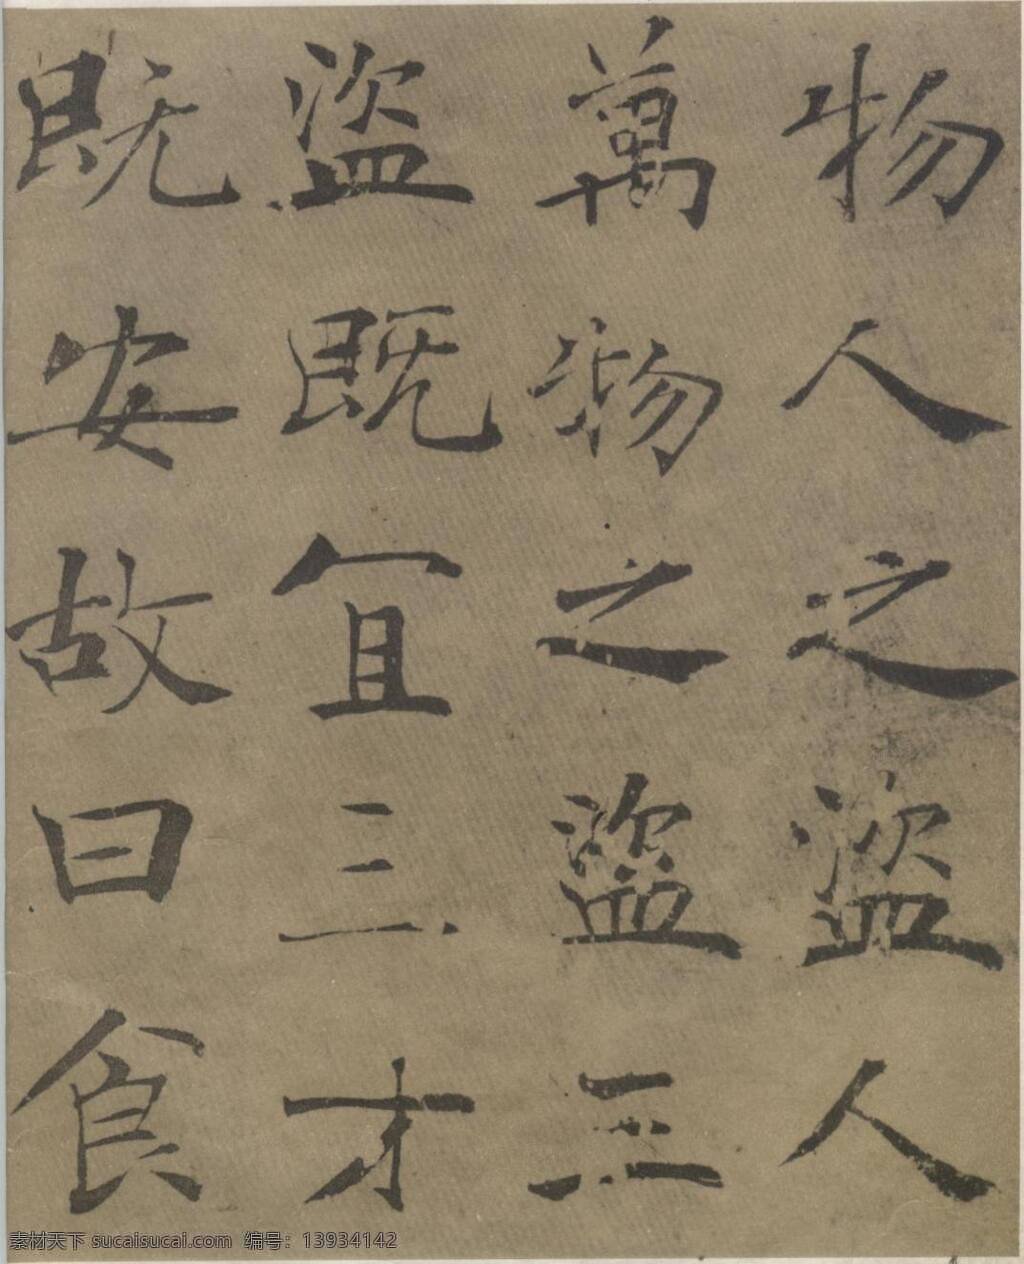 物人之盜人
萬物之盜三
盜既冝三才
既安故曰食
素材天下 sucaisucai.com 编号：13934142